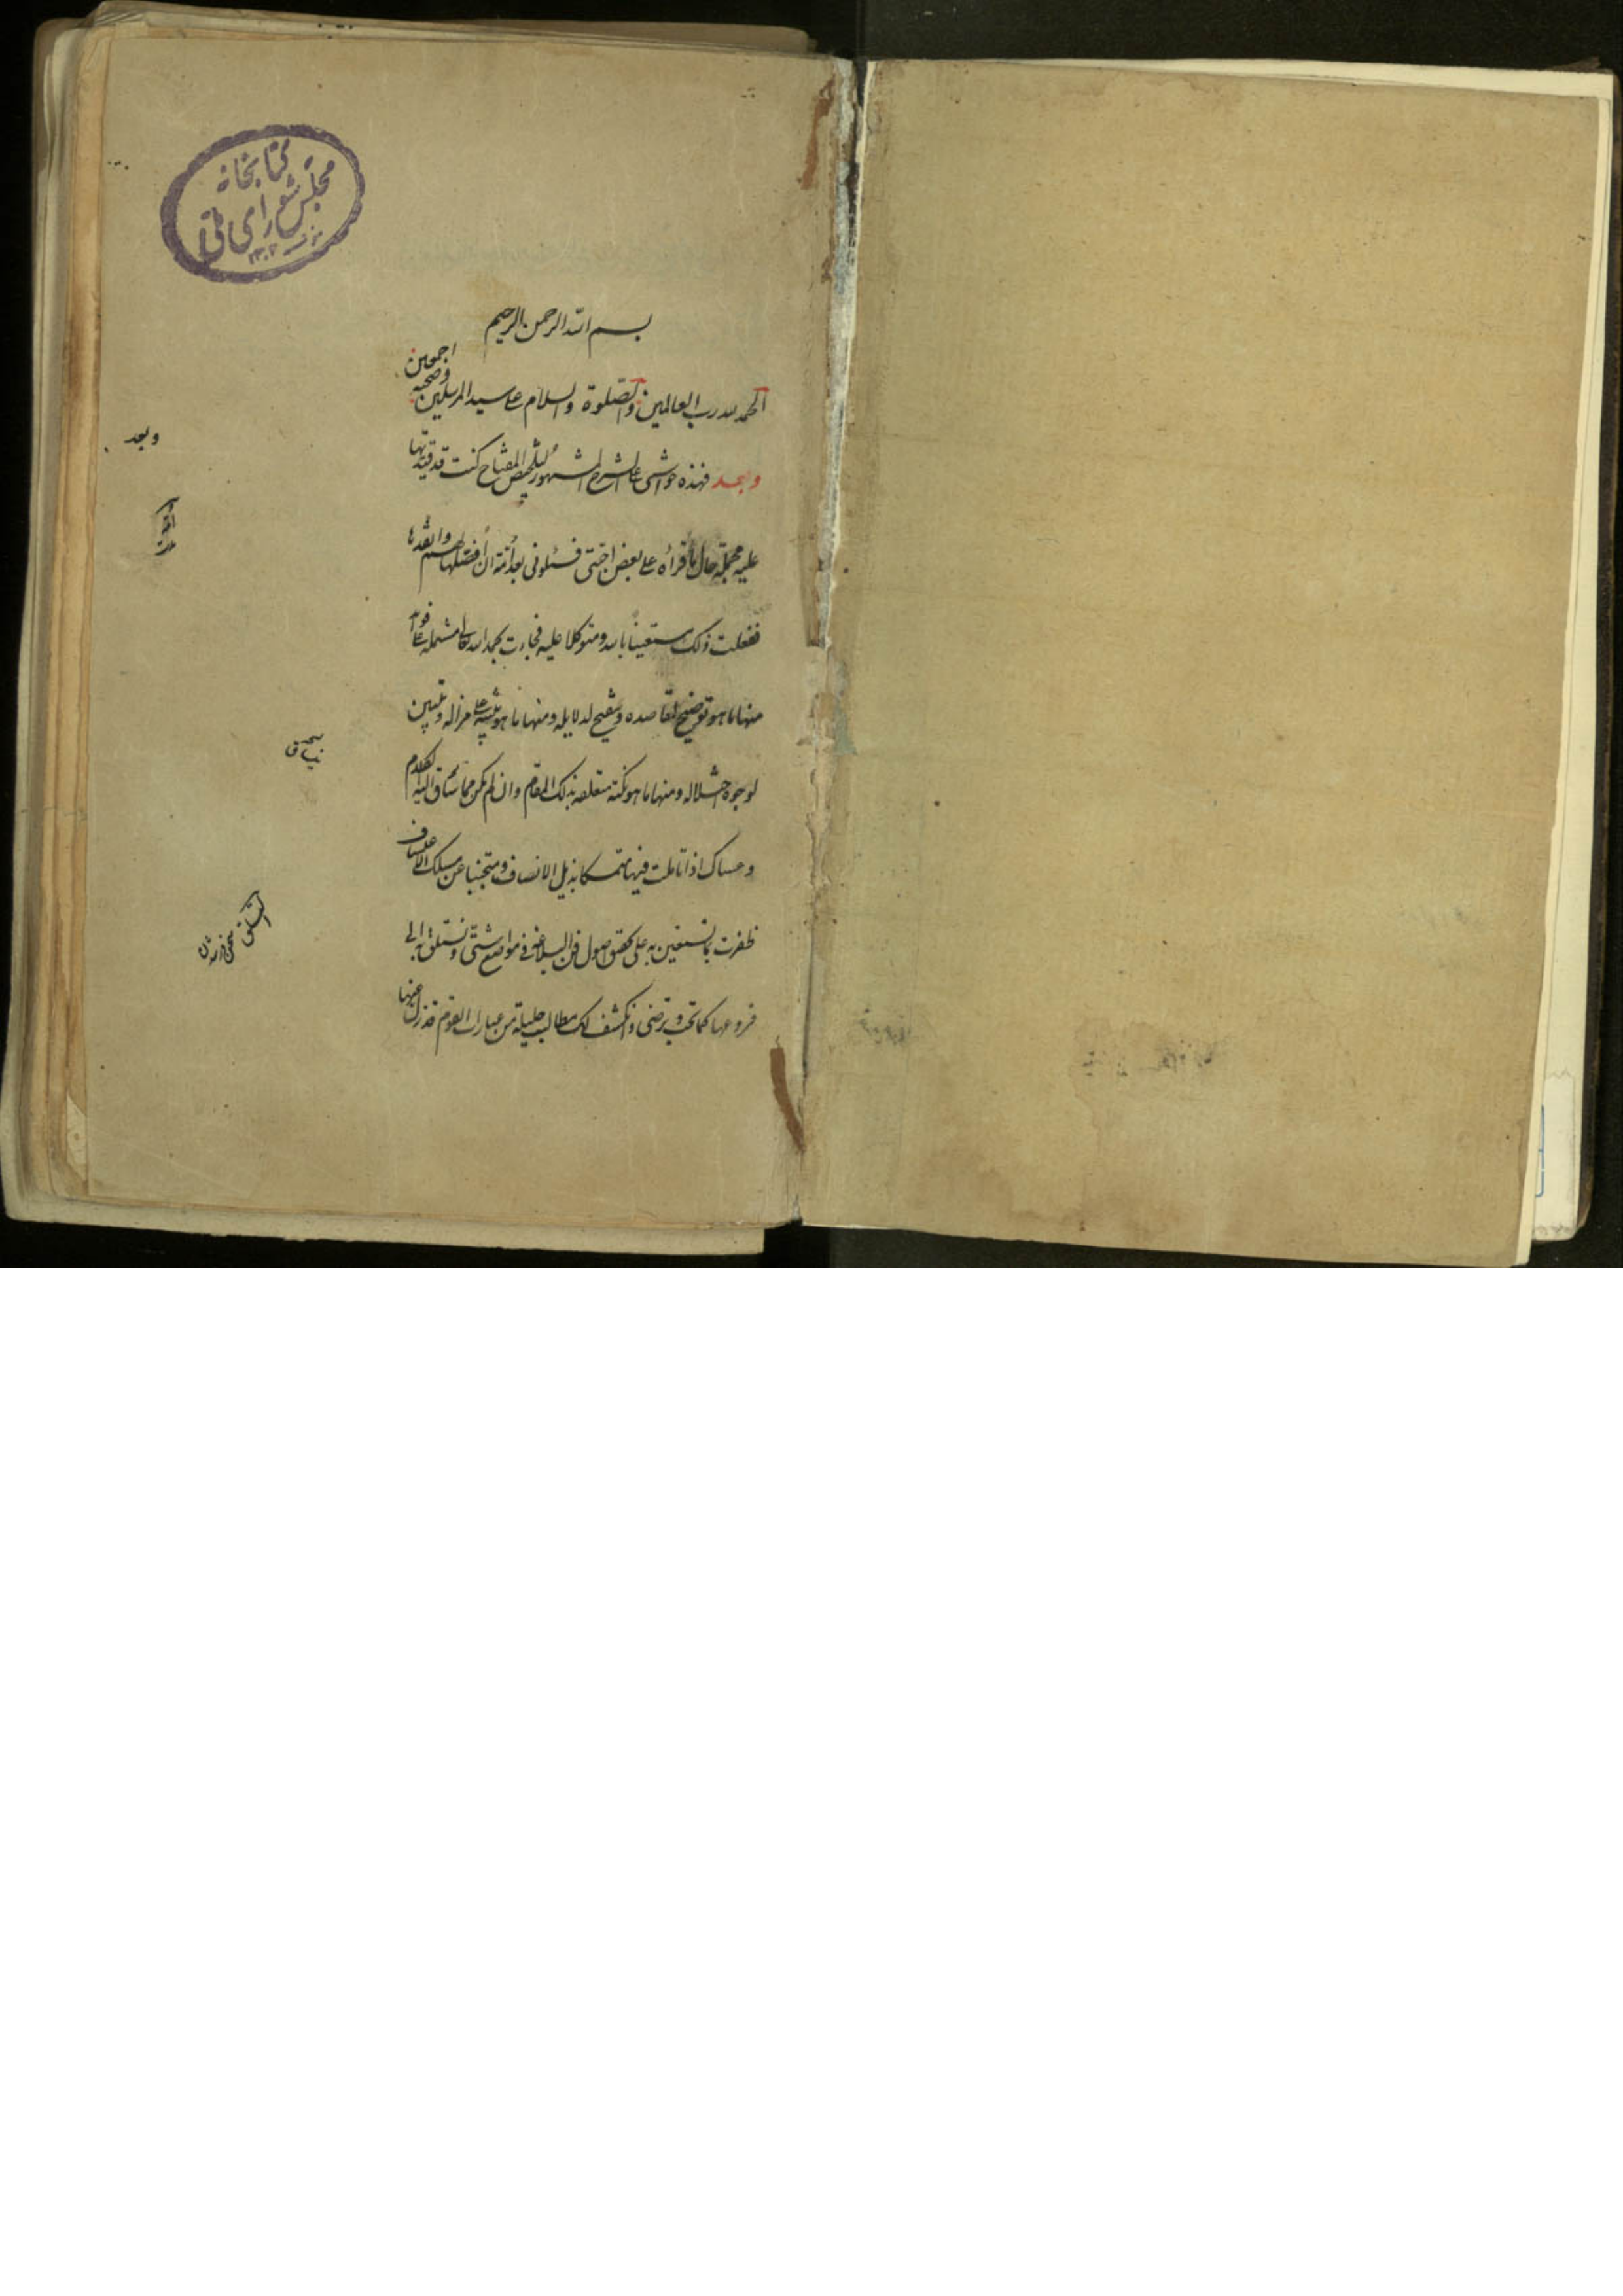 كتابخانه
مجلس شورای ملی
بسم الله الرحمن الرحيم
الحمد لله رب العالمين والصلوة والسلام على سيد المرسلين وصحبه اجمعين
وبعد فهذه حواشى على الشرح المشهور لتلخيص المفتاح كنت قد قيدتها
عليه مجملة حال ما قرأه على بعض احبتى فسئلونى بعد أمة ان أفصلها لهم وانقدها
ففعلت ذلك مستعينا بالله ومتوكلا عليه فجاءت بحمد الله تعالى مشتملة على فوائد
منها ما هو توضيح لمقاصده وتنقيح لدلايله ومنها ما هو تنبيه على مزاله وتبيين
لوجوه اختلاله ومنها ما هو نكتة متعلقة بذلك المقام وان لم يكن مما يساق اليه الكلام
وعساك اذا تاملت فيها متمسكا بذيل الانصاف ومتجنبا عن مسلك الاعتساف
ظفرت بما تستعين به على تحقق اصول فن البلاغة فى مواضع شتى وتستلق به الى
فروعها كما تحب وترضى وانكشف لك مطالب جليلة من عبارات القوم قد زل عنها
وبعد